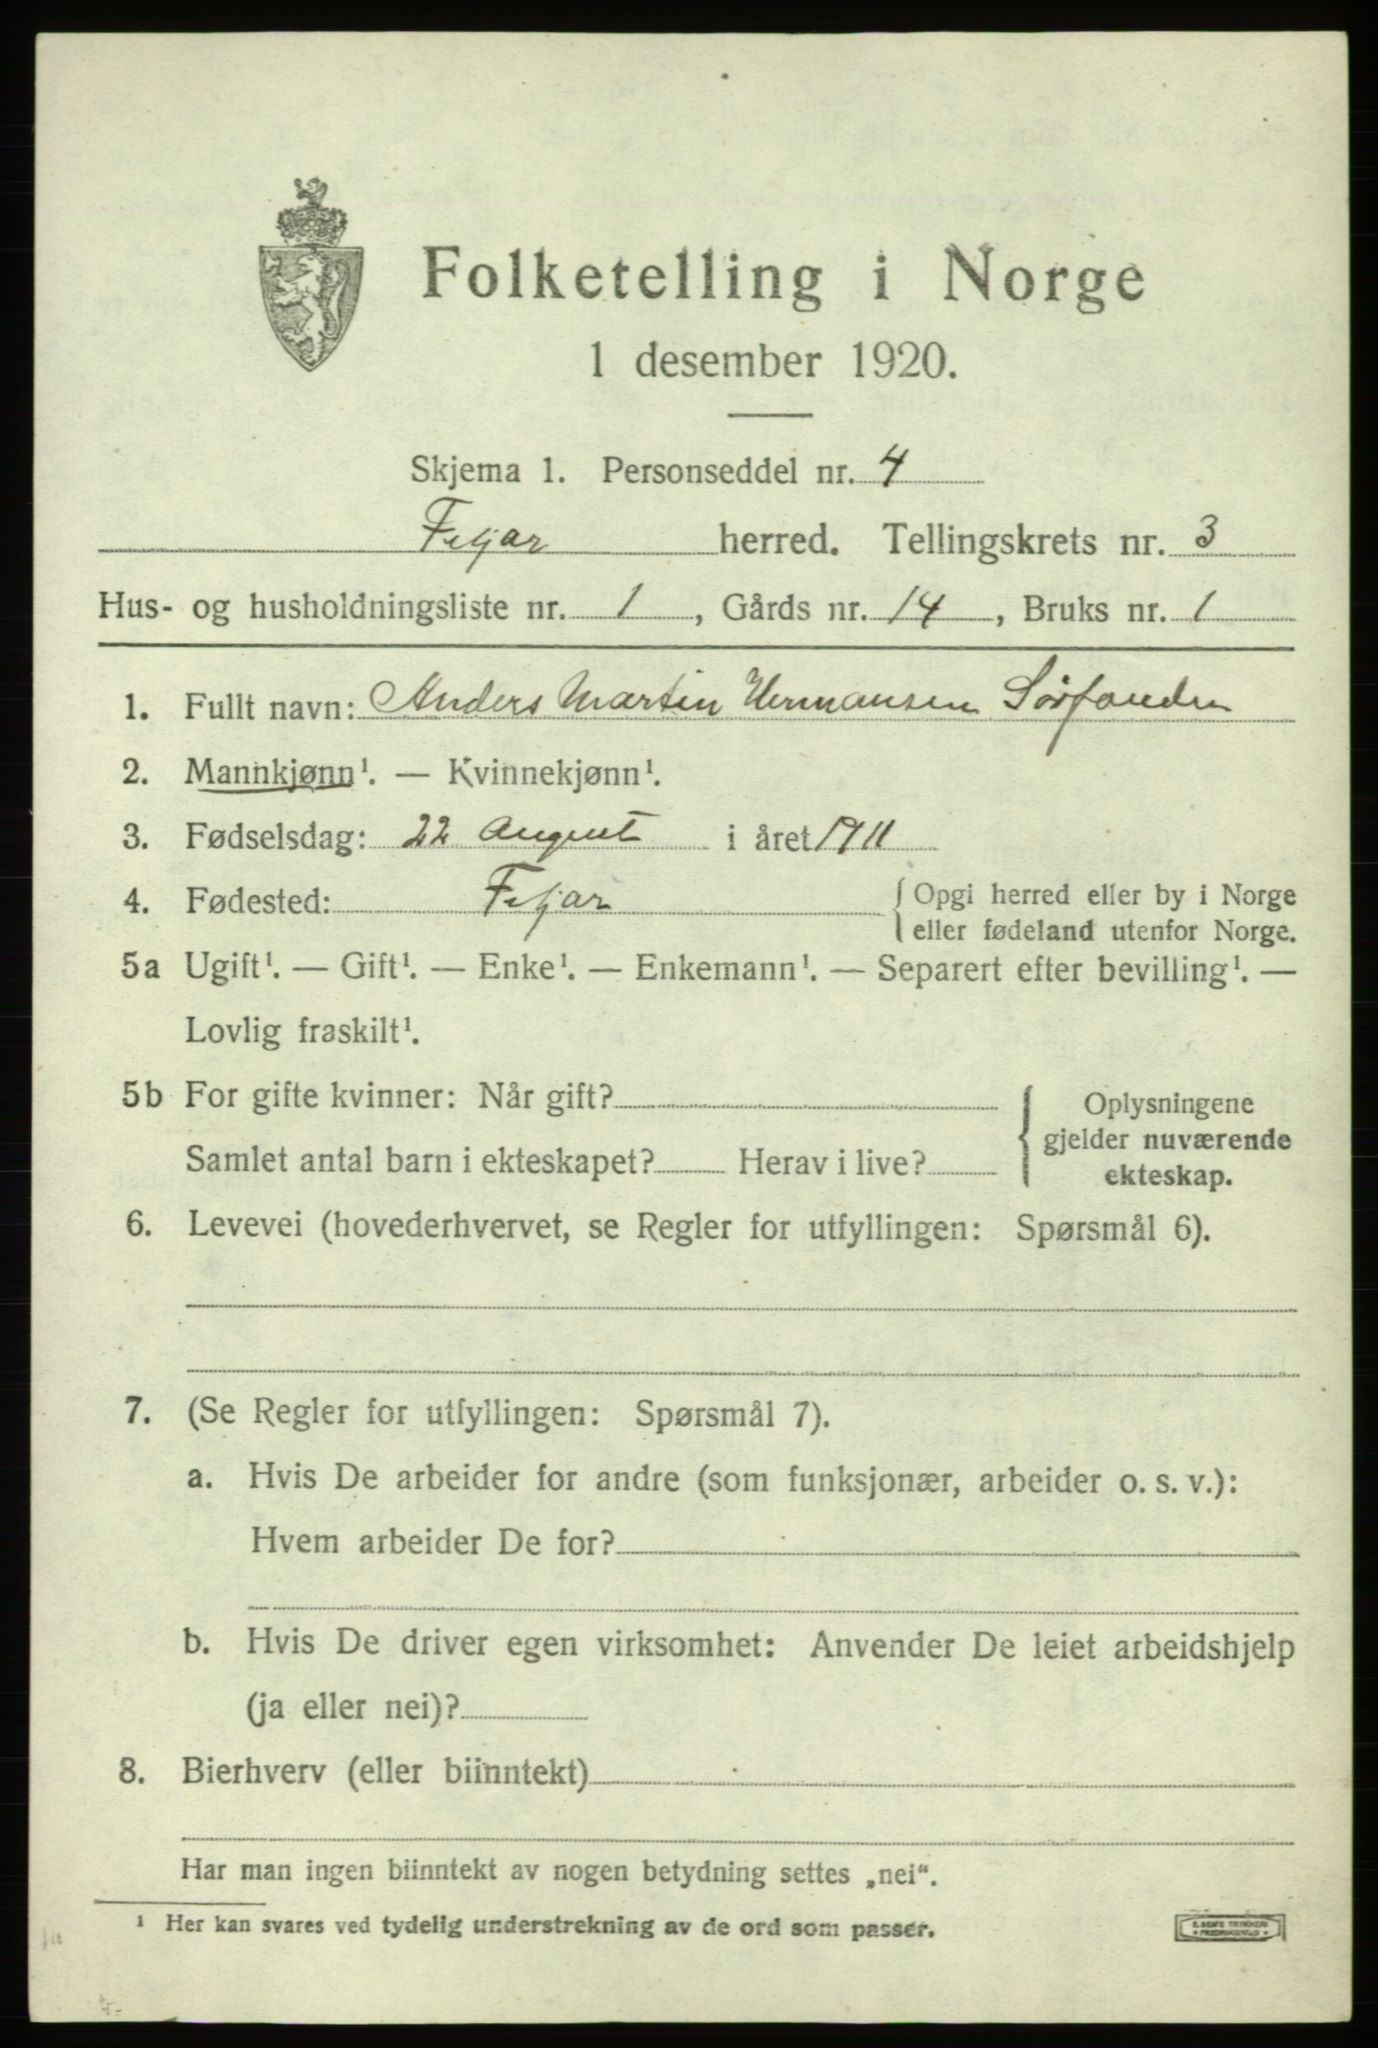 Folketelling i Norge
1 desember 1920.
Skjema 1. Personseddel nr. 4
Fitjar herred. Tellingskrets nr. 3
Hus- og husholdningsliste nr. 1, Gårds nr. 14, Bruks nr. 1
1. Fullt navn: Anders Martin Hermansen
2. Mannkjønn¹. — Kvinnekjønn¹.
3. Fødselsdag: 22 August i året 1911
4. Fødested: Fitjar { Opgi herred eller by i Norge
eller fødeland utenfor Norge.
5a Ugift¹. — Gift¹. — Enke¹. — Enkemann¹. — Separert efter bevilling¹. —
Lovlig fraskilt¹.
5b For gifte kvinner: Når gift?
Samlet antal barn i ekteskapet? Herav i live?
{ Oplysningene
gjelder nuværende
ekteskap.
6. Levevei (hovederhvervet, se Regler for utfyllingen: Spørsmål 6).
7. (Se Regler for utfyllingen: Spørsmål 7).
a. Hvis De arbeider for andre (som funksjonær, arbeider o. s. v.):
Hvem arbeider De for?
b. Hvis De driver egen virksomhet: Anvender De leiet arbeidshjelp
(ja eller nei)?
8. Bierhverv (eller biinntekt)
Har man ingen biinntekt av nogen betydning settes „nei“.
¹ Her kan svares ved tydelig understrekning av de ord som passer.